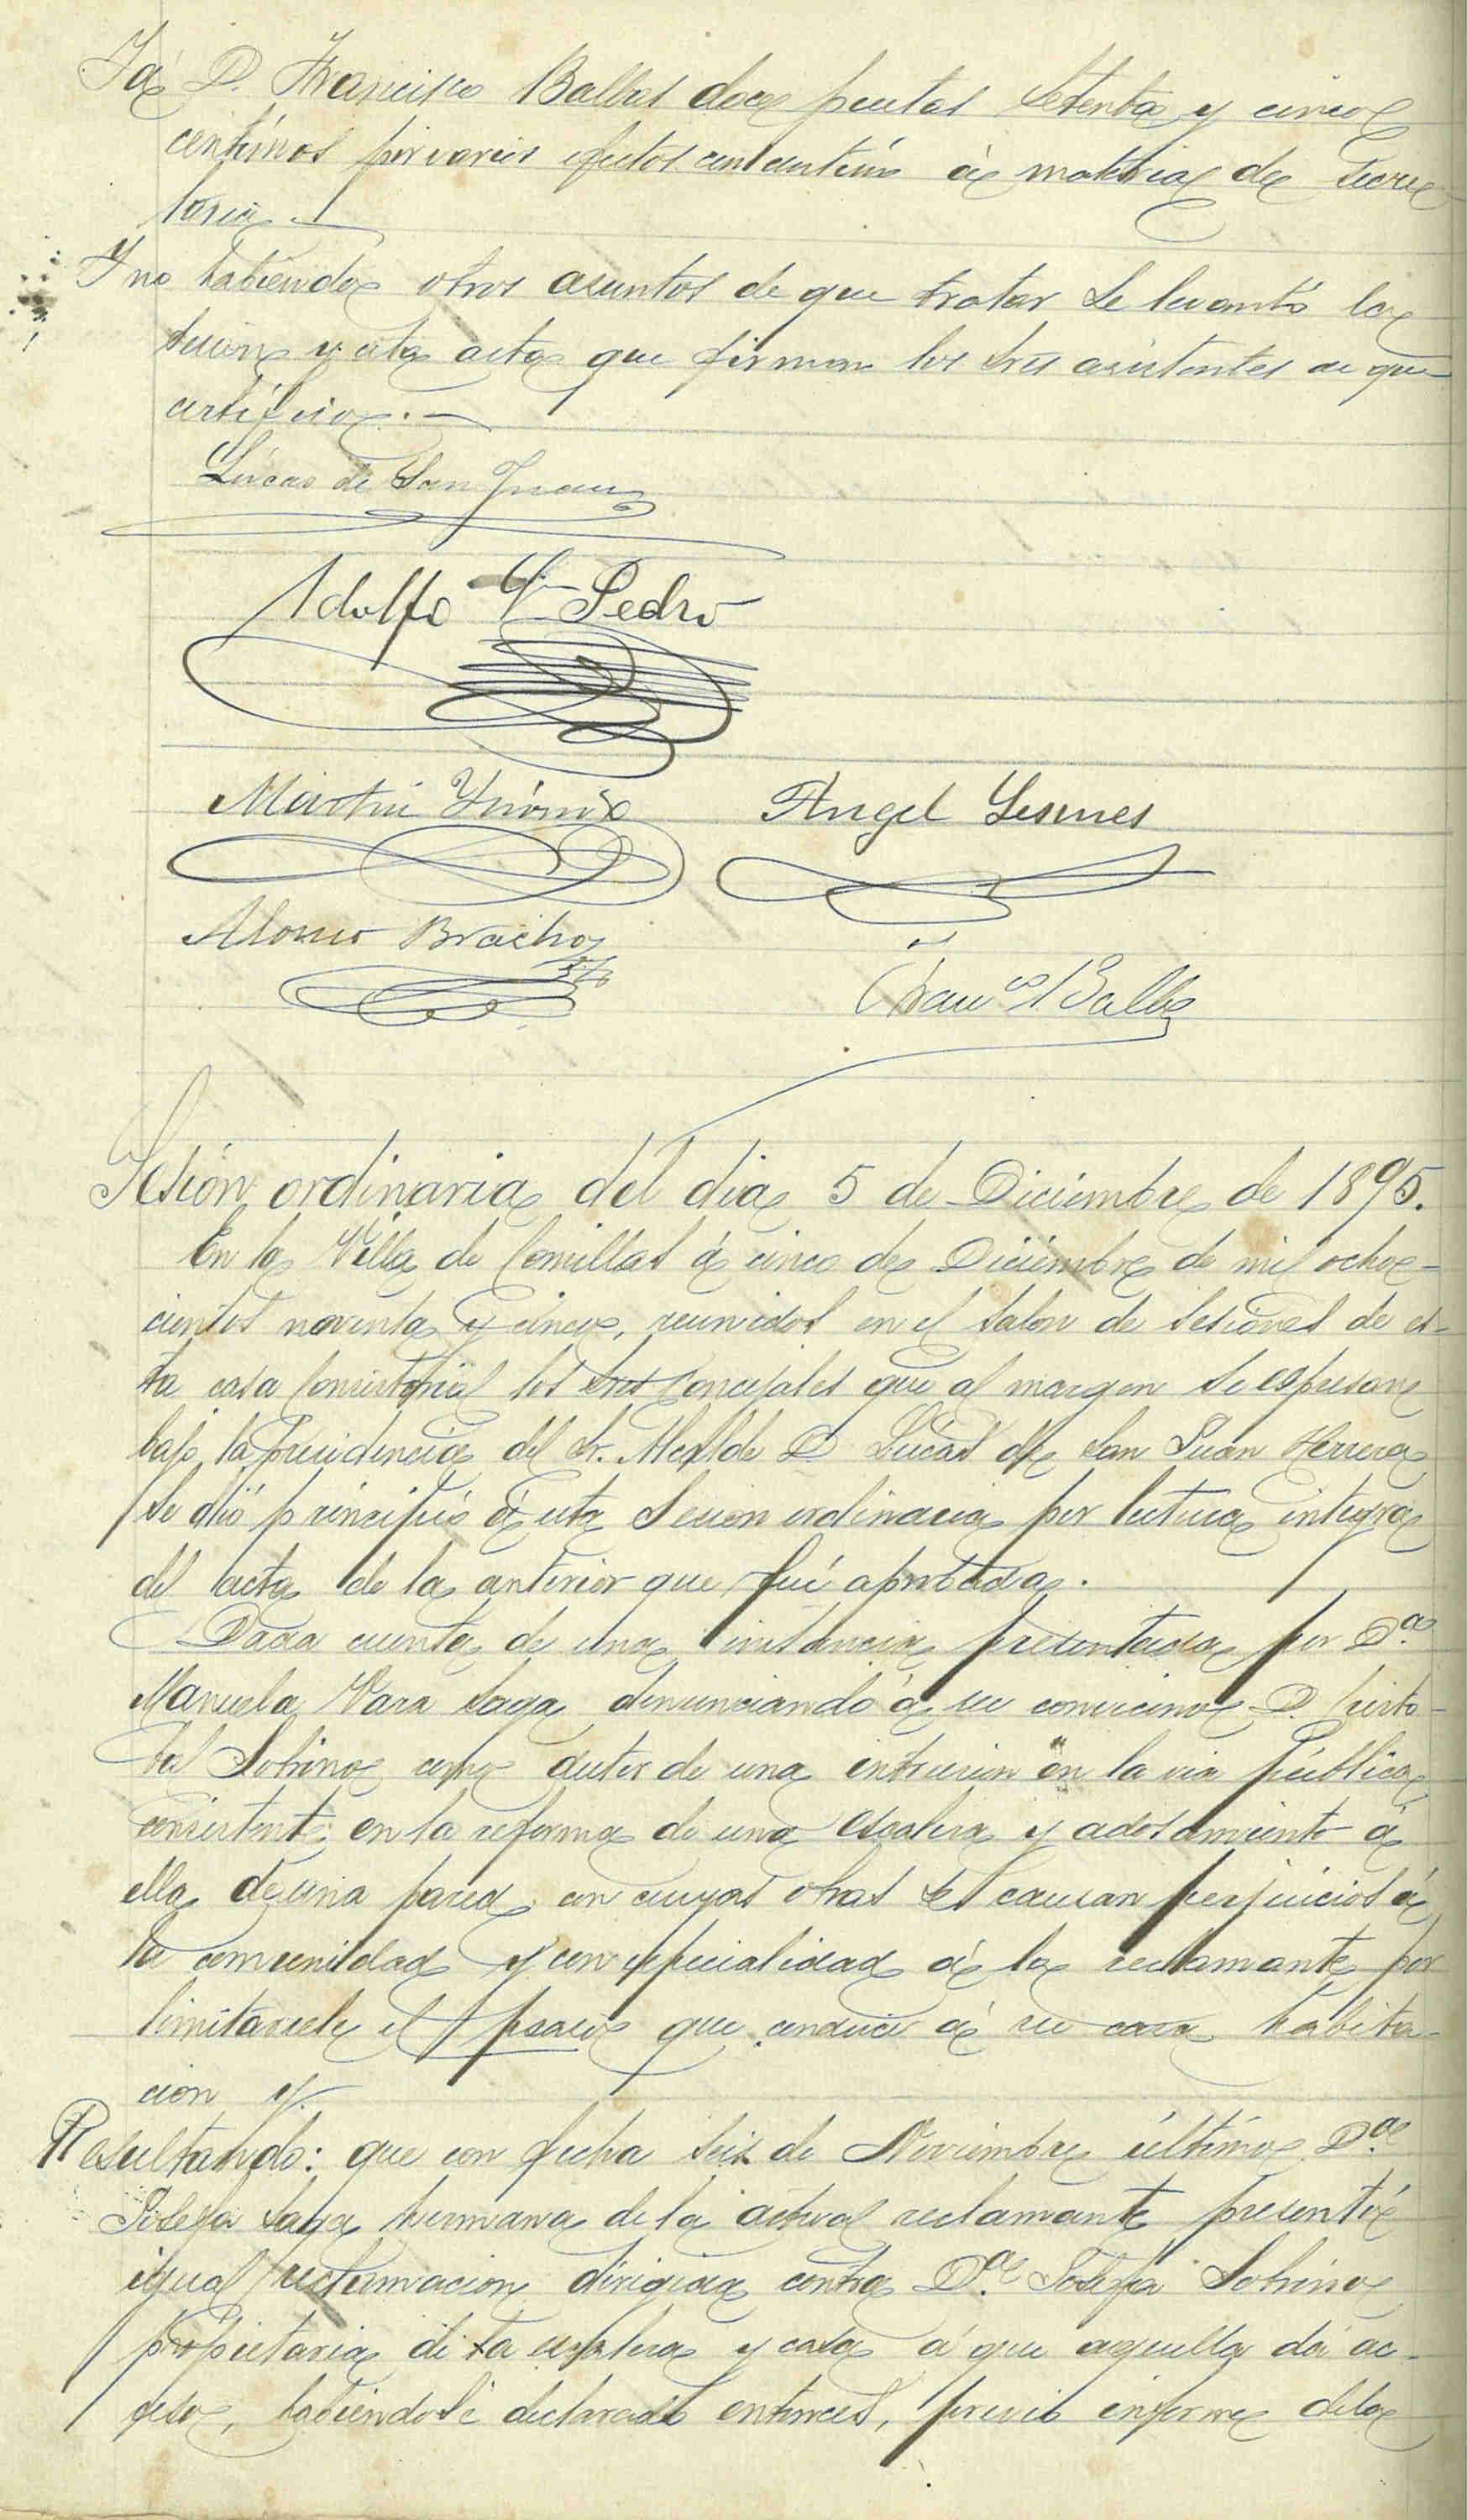 Y a D. Francisco Balbas doce pesetas setenta y cinco
centimos por varios efectos con destino á material de Secre-
taria.
Y no habiendo otros asuntos de que tratar se levantó la
sesion y esta acta que firman los Sres asistentes de que
certifico.
Lúcas de San Juan
Adolfo G. Pedro
Martin
Angel Lesmes
Alonso Bracho
Fran.co Balbas
Sesión ordinaria del dia 5 de Diciembre de 1895.
En la Villa de Comillas á cinco de Diciembre de mil ocho-
cientos noventa y cinco, reunidos en el salon de sesiones de es-
ta casa Consistorial los Sres Concejales que al margen se espresan
bajo la presidencia del Sr. Alcalde D Lúcas de San Juan Herrera
se dió principio á esta Sesion ordinaria por lectura integra
del acta de la anterior que fué aprobada.
Dada cuenta de una instancia presentada por D.ª
Manuela Vara Saga denunciando á su convecino D. Cristo-
bal Sobrino como autor de una intrusion en la via pública
consistente en la reforma de una escalera y adosamiento á
ella de una pared con cuyas obras se causan perjuicios á
la comunidad y con especialidad á la reclamante por
limitarsele el paso que conduce á su casa habita-
cion y.
Resultando: que con fecha seis de Noviembre último D.ª
Josefa Saga hermana de la actual reclamante presentó
igual reclamacion dirigida contra D.ª Josefa Sobrino
propietaria de la escalera y casa á que aquella dá ac-
ceso, habiendose declarado entonces, previo informe de la